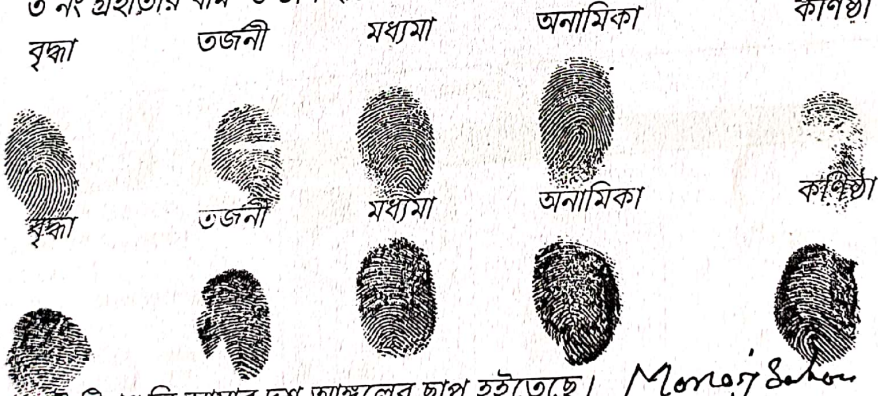 ৩ নং গ্রহীতার বাম
বৃদ্ধা তর্জনী মধ্যমা অনামিকা কণিষ্ঠা
বৃদ্ধা তর্জনী মধ্যমা অনামিকা কণিষ্ঠা
আমার দশ আঙ্গুলের ছাপ হইতেছে।